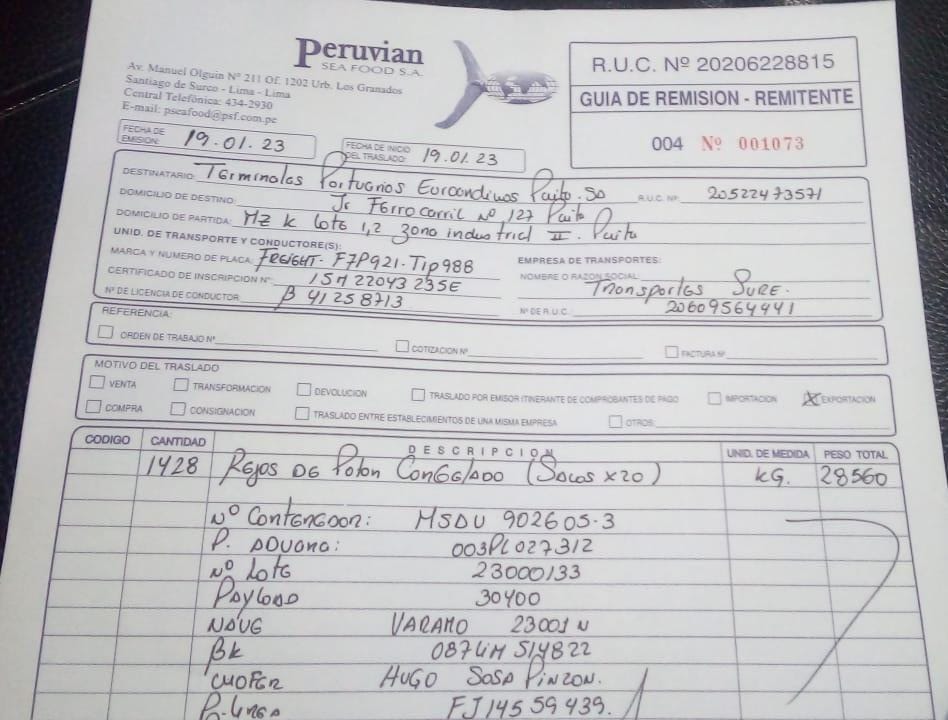 Peruvian
SEA FOOD S.A.
Av. Manuel Olguin Nº 211 Of. 1202 Urb. Los Granados
Santiago de Surco - Lima - Lima
Central Telefónica: 434-2930
E-mail: pseafood@psf.com.pe
R.U.C. Nº 20206228815
GUIA DE REMISION - REMITENTE
004 Nº 001073
FECHA DE EMISION: 19.01.23
FECHA DE INICIO DEL TRASLADO: 19.01.23
DESTINATARIO: Terminales Portuarios Euroandinos Paita. SA R.U.C. Nº 20522473571
DOMICILIO DE DESTINO: Jr Ferrocarril Nº 127 Paita
DOMICILIO DE PARTIDA: MZ K lote 1,2 zona industrial II. Paita
UNID. DE TRANSPORTE Y CONDUCTORE(S):
MARCA Y NUMERO DE PLACA: FREIGHT- F7P921-T1P988
CERTIFICADO DE INSCRIPCION Nº: 15M22043235E
Nº DE LICENCIA DE CONDUCTOR B 41258713
EMPRESA DE TRANSPORTES:
NOMBRE O RAZON SOCIAL: Transportes SURE.
Nº DE R.U.C.: 20609564441
REFERENCIA:
ORDEN DE TRABAJO Nº COTIZACION Nº FACTURA Nº
MOTIVO DEL TRASLADO
VENTA TRANSFORMACION DEVOLUCION TRASLADO POR EMISOR ITINERANTE DE COMPROBANTES DE PAGO IMPORTACION X EXPORTACION
COMPRA CONSIGNACION TRASLADO ENTRE ESTABLECIMIENTOS DE UNA MISMA EMPRESA OTROS:
CODIGO CANTIDAD DESCRIPCION UNID. DE MEDIDA PESO TOTAL
1428 Rejos DE Poton CONGELADO (Sacos x20) KG. 28560
Nº Contenedor: MSDU 902605-3
P. ADUANA: 003PL027312
Nº Lote 23000133
Payload 30400
NAVE VARAMO 23001 N
BK 087LIM514822
CHOFER HUGO SOSA PINZON.
P. Linea FJ14559439.